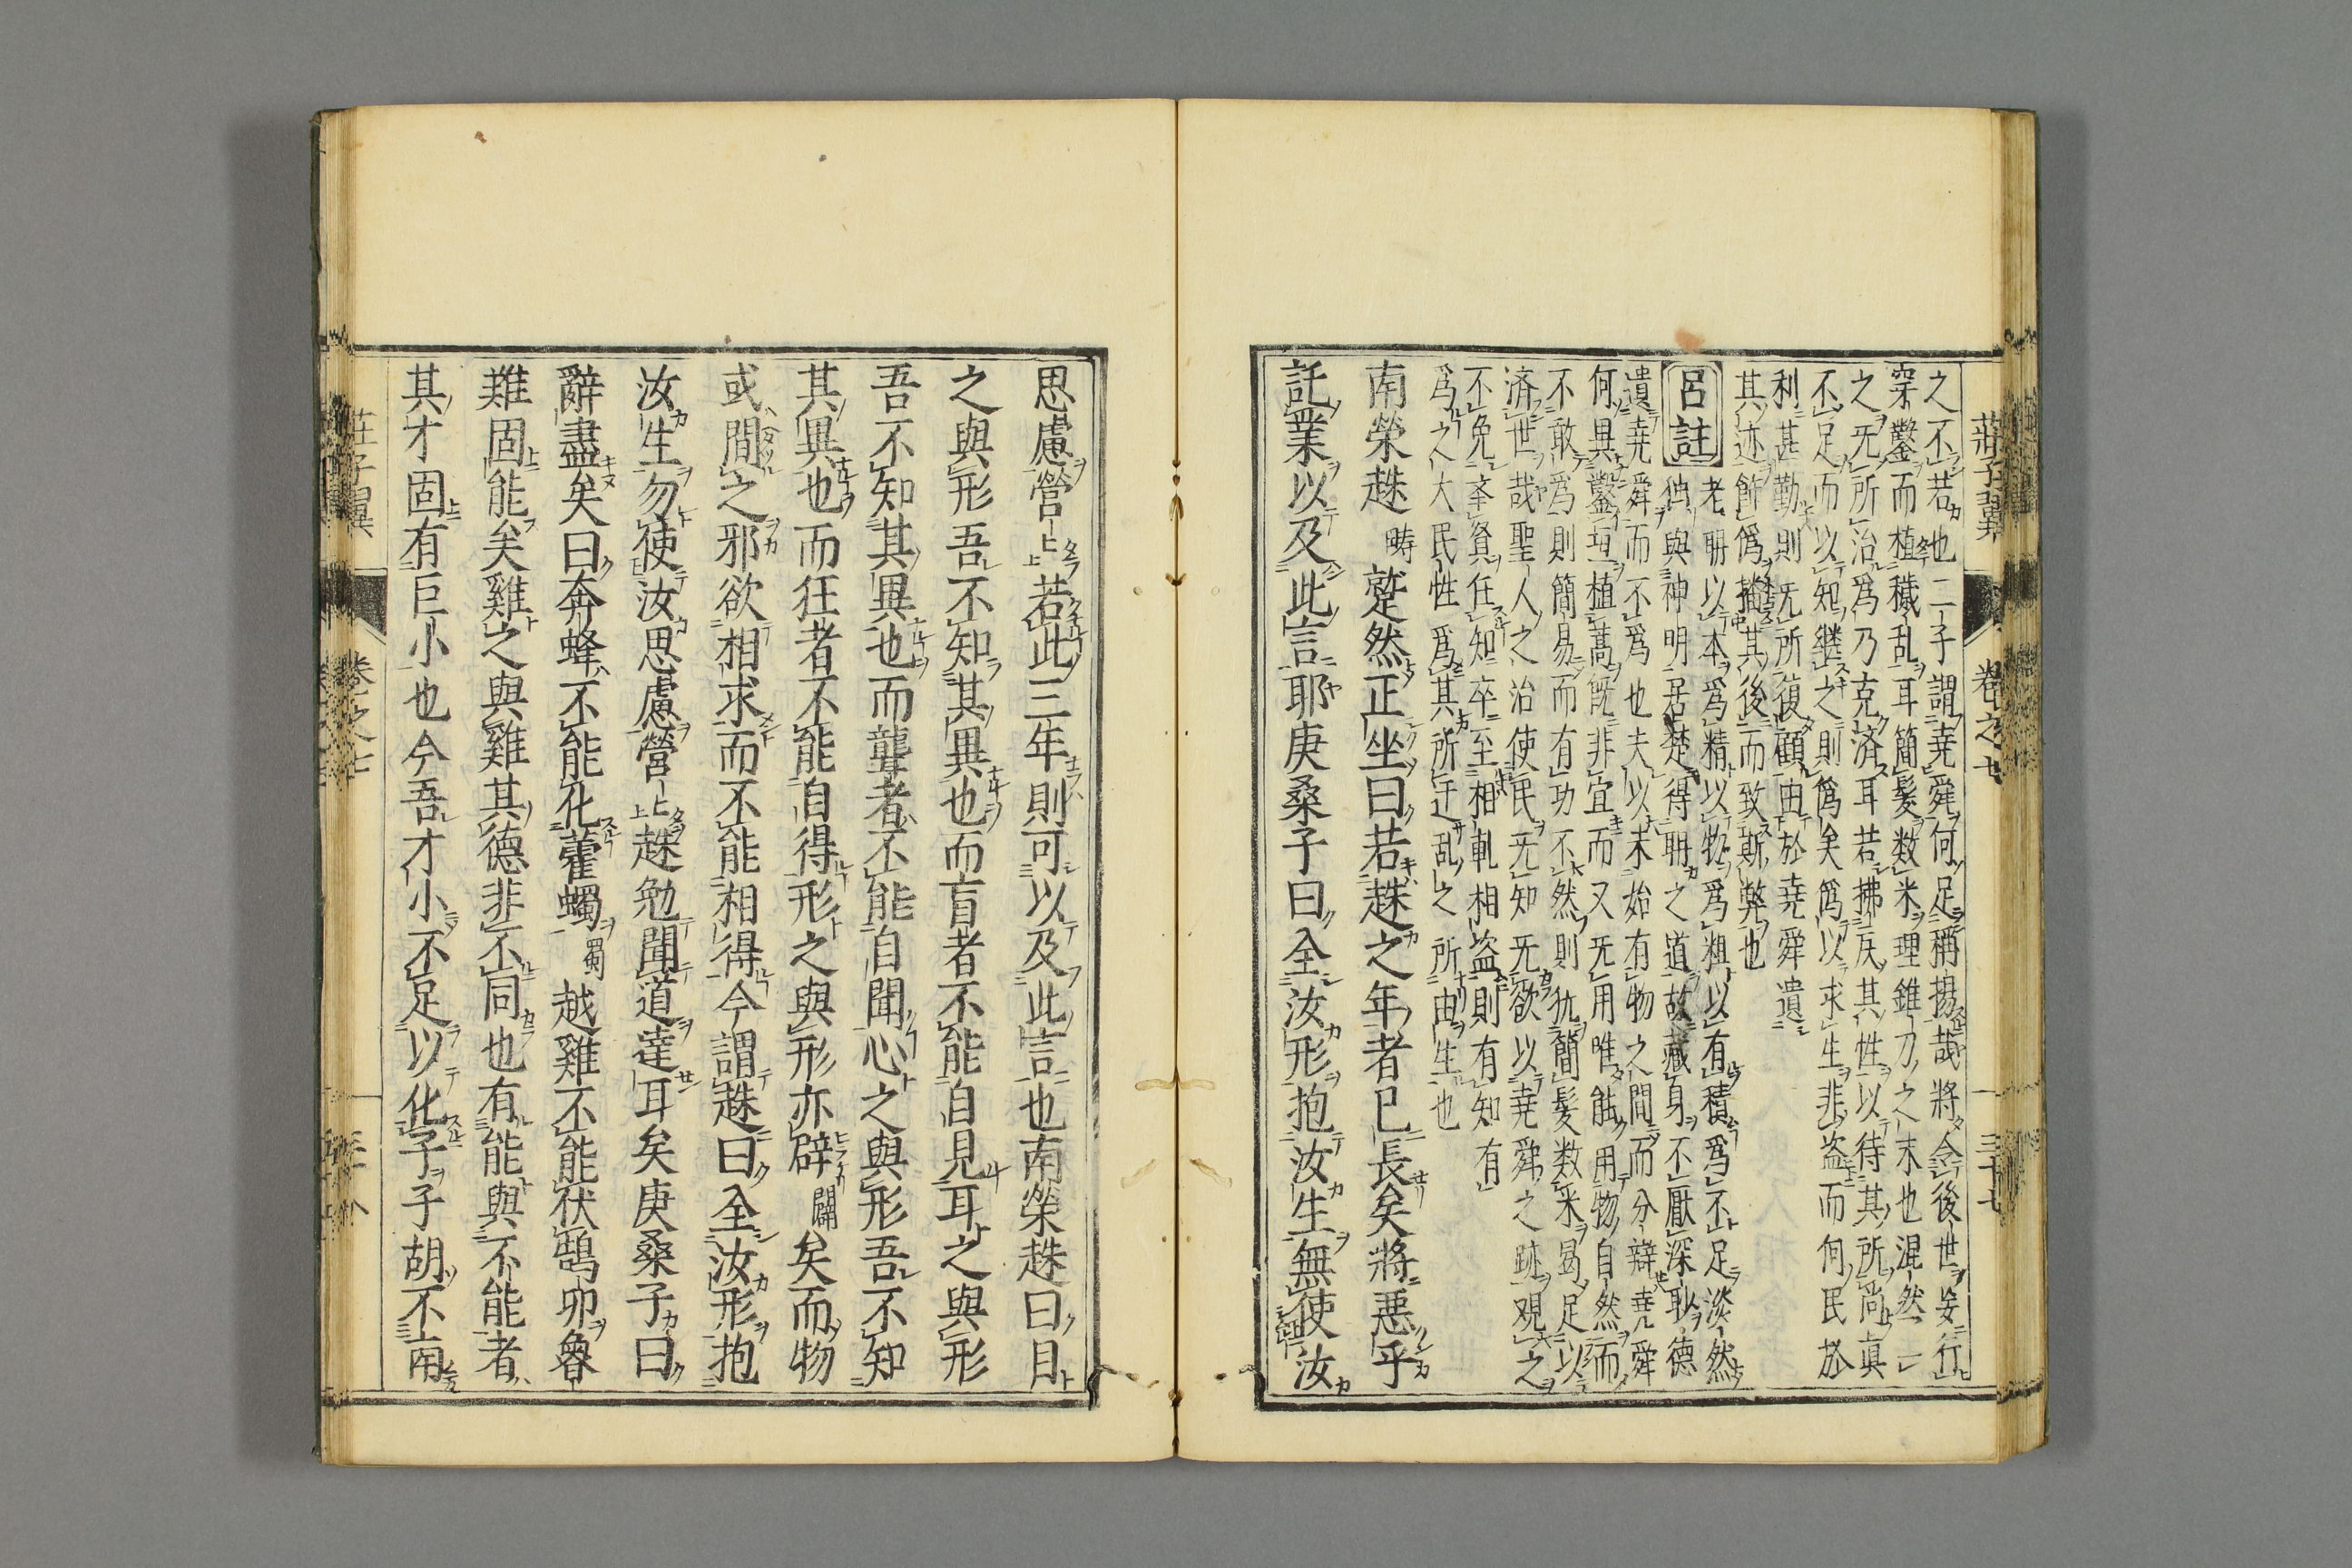 莊子翼　卷之七　三十七
之不若也二子謂堯舜何足稱揚哉將令後世妄行
穿鑿而植穢乱耳簡髮数米理錐刀之末也混然一
之无所治爲乃克済耳若拂反其性以待其所尚眞
不足而以知継之則僞矣僞以求生非盗而何民於
利甚勤則无所復顧由於堯舜遺
其迹飾僞播其後而致斯弊也
呂註　老聃以本爲精以物爲粗以有積爲不足淡然
独與神明居楚得聃之道故藏身不厭深耿德
遺堯舜而不爲也夫以未始有物之間而分辯堯舜
何異鑿垣植蒿既非宜而又无用唯能用物自然而
不敢爲則簡易而有功不然則犹簡髮数米曷足以
済世哉聖人之治使民无知无欲以堯舜之跡观之
不免夲貟任知卒至相軋相盗則有知有
爲之大民性爲其所迂乱之所由生也
南榮趎疇蹵然正坐曰若趎之年者已長矣將惡乎
託業以及此言耶庚桑子曰全汝形抱汝生無使汝
思慮營營若此三年則可以及此言也南榮趎曰目
之與形吾不知其異也而盲者不能自見耳之與形
吾不知其異也而聾者不能自聞心之與形吾不知
其異也而狂者不能自得形之與形亦辟闢矣而物
或間之邪欲相求而不能相得今謂趎曰全汝形抱
汝生勿使汝思慮營營趎勉聞道達耳矣庚桑子曰
辭盡矣曰奔蜂不能化藿蠋蜀越雞不能伏鵠卵魯
雞固能矣雞之與雞其德非不同也有能與不能者
其才固有巨小也今吾才小不足以化子子胡不南
莊子翼　卷之七